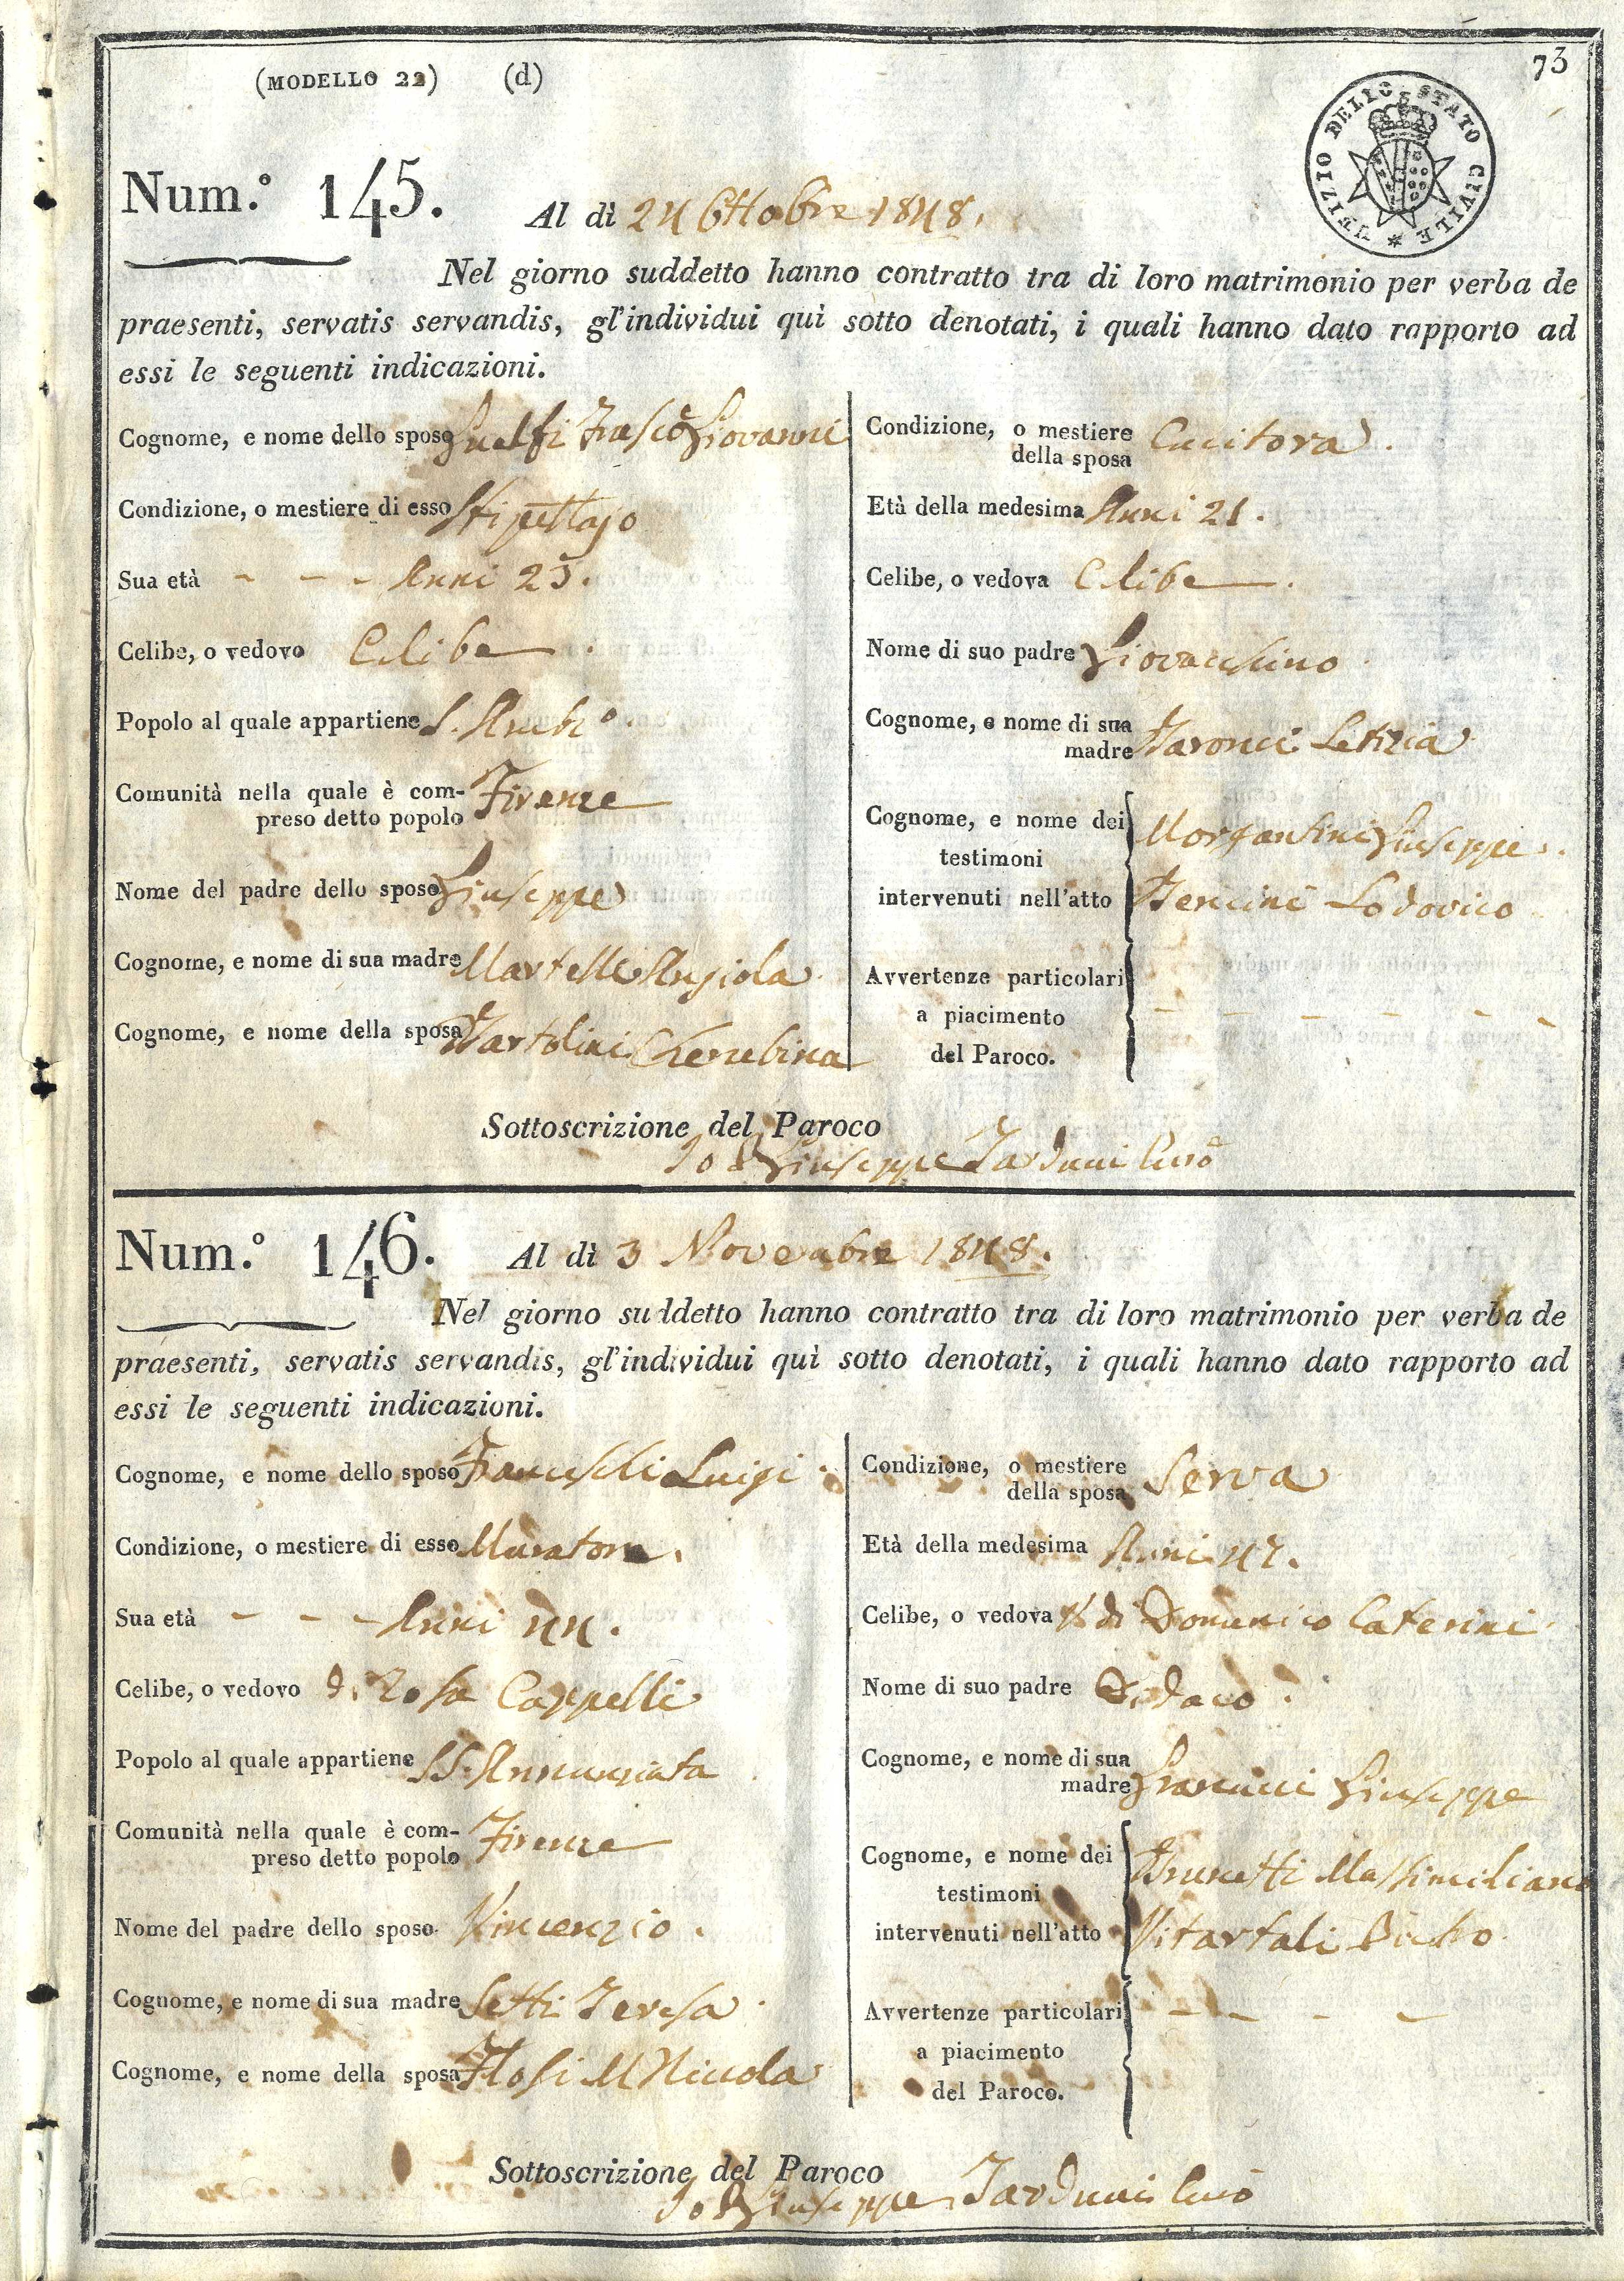 (MODELLO 22) (d)
73
UFIZIO DELLO STATO CIVILE
Num.º 145. Al dì 24 Ottobre 1848.
Nel giorno suddetto hanno contratto tra di loro matrimonio per verba de
praesenti, servatis servandis, gl'individui quì sotto denotati, i quali hanno dato rapporto ad
essi le seguenti indicazioni.
Cognome, e nome dello sposo Guelfi Giovanni
Condizione, o mestiere di esso Stipettajo
Sua età - - - Anni 23.
Celibe, o vedovo Celibe.
Popolo al quale appartiene S. Ambº.
Comunità nella quale è com-
preso detto popolo Firenze
Nome del padre dello sposo Giuseppe
Cognome, e nome di sua madre Martelli Angiola
Cognome, e nome della sposa Bartolini Cherubina
Condizione, o mestiere
della sposa Cucitora.
Età della medesima Anni 21.
Celibe, o vedova Celibe.
Nome di suo padre Giovacchino
Cognome, e nome di sua
madre Baronci Letizia
Cognome, e nome dei
testimoni
intervenuti nell'atto
Morgantini Giuseppe.
Bencini Lodovico
Avvertenze particolari
a piacimento
del Paroco.
- - - - - -
Sottoscrizione del Paroco
Io Giuseppe Tarduci
Num.º 146. Al dì 3 Novembre 1848.
Nel giorno suddetto hanno contratto tra di loro matrimonio per verba de
praesenti, servatis servandis, gl'individui quì sotto denotati, i quali hanno dato rapporto ad
essi le seguenti indicazioni.
Cognome, e nome dello sposo Franceschi Luigi.
Condizione, o mestiere di esso Muratore.
Sua età - - - Anni 44.
Celibe, o vedovo di Rosa Cappelli
Popolo al quale appartiene SS. Annunziata
Comunità nella quale è com-
preso detto popolo Firenze
Nome del padre dello sposo Vincenzio.
Cognome, e nome di sua madre Setti Teresa.
Cognome, e nome della sposa Flosi M Niccola
Condizione, o mestiere
della sposa Serva
Età della medesima Anni 42.
Celibe, o vedova V. di Domenico Caterini
Nome di suo padre
Cognome, e nome di sua
madre Francini Giuseppe
Cognome, e nome dei
testimoni
intervenuti nell'atto
Brunetti Massimiliano
Vitartali Pietro
Avvertenze particolari
a piacimento
del Paroco.
- - - -
Sottoscrizione del Paroco
Io Giuseppe Tarduci